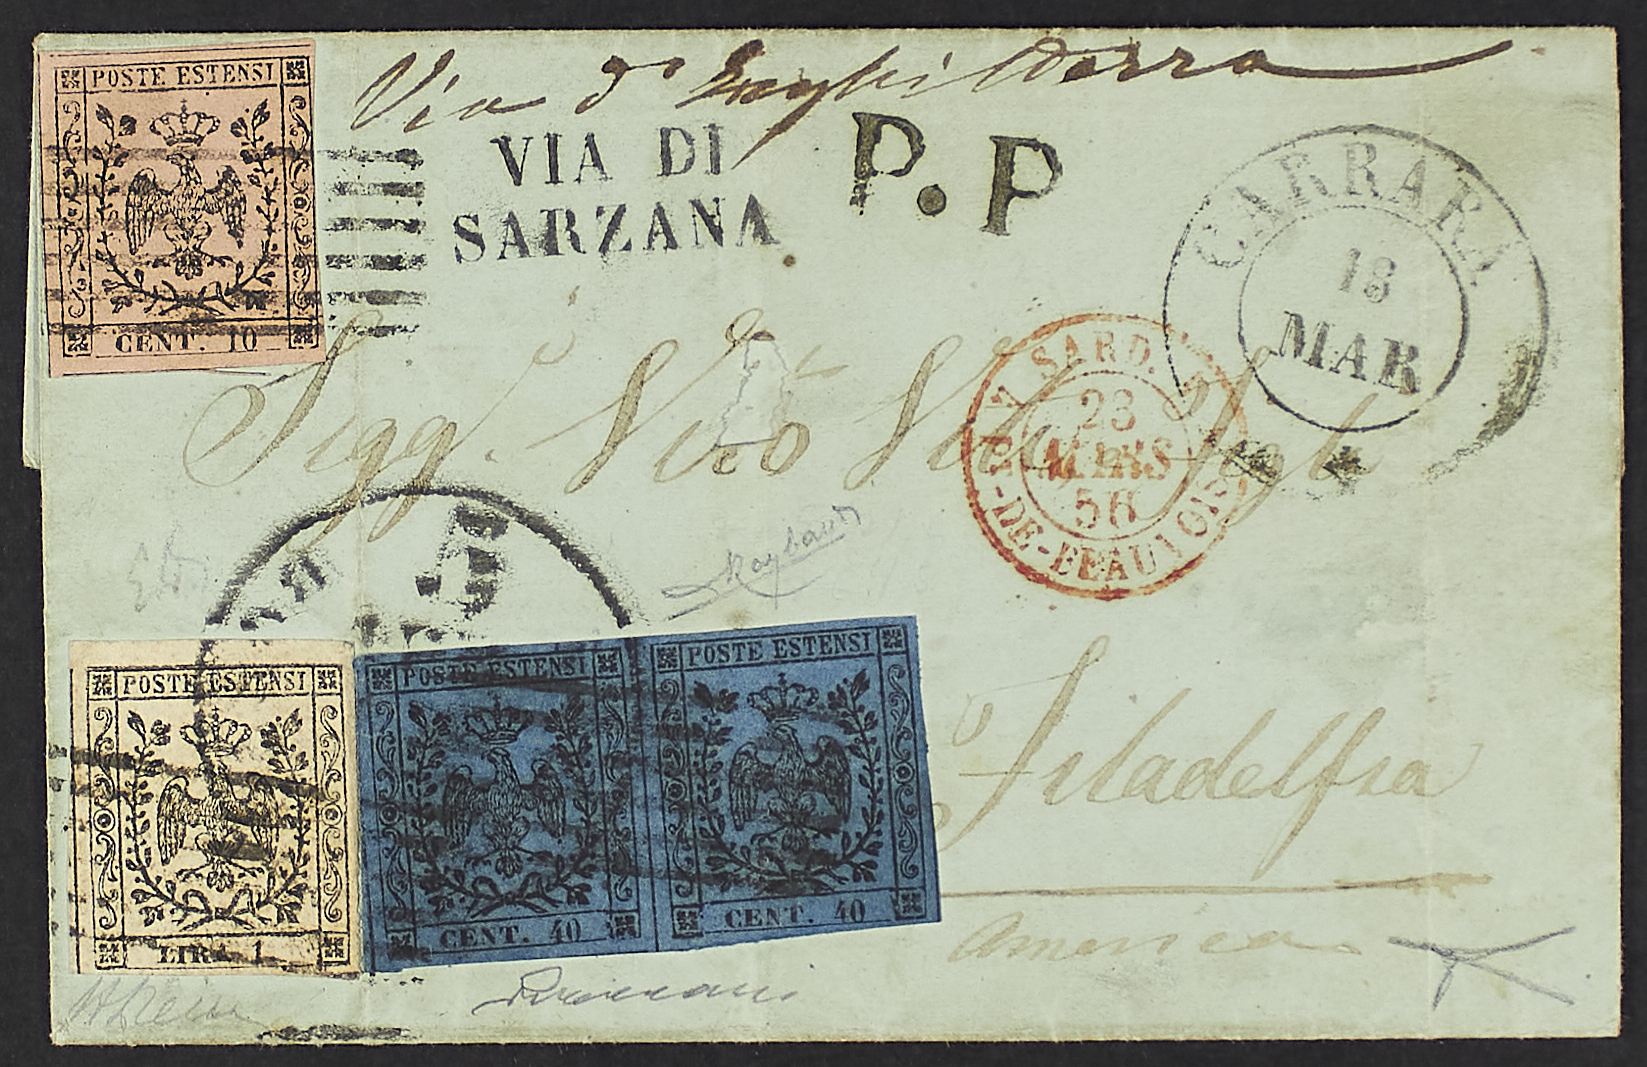 Via d' Inghilterra
POSTE ESTENSI
CENT. 10
VIA DI
SARZANA
P.P
CARRARA
18
MAR
SARD.
23
MARS
56
PT-DE-BEAUVOISIN
Sigg. Vito Viti
Filadelfia
America
Raybaud
POSTE ESTENSI
LIRA 1
POSTE ESTENSI
CENT. 40
POSTE ESTENSI
CENT. 40